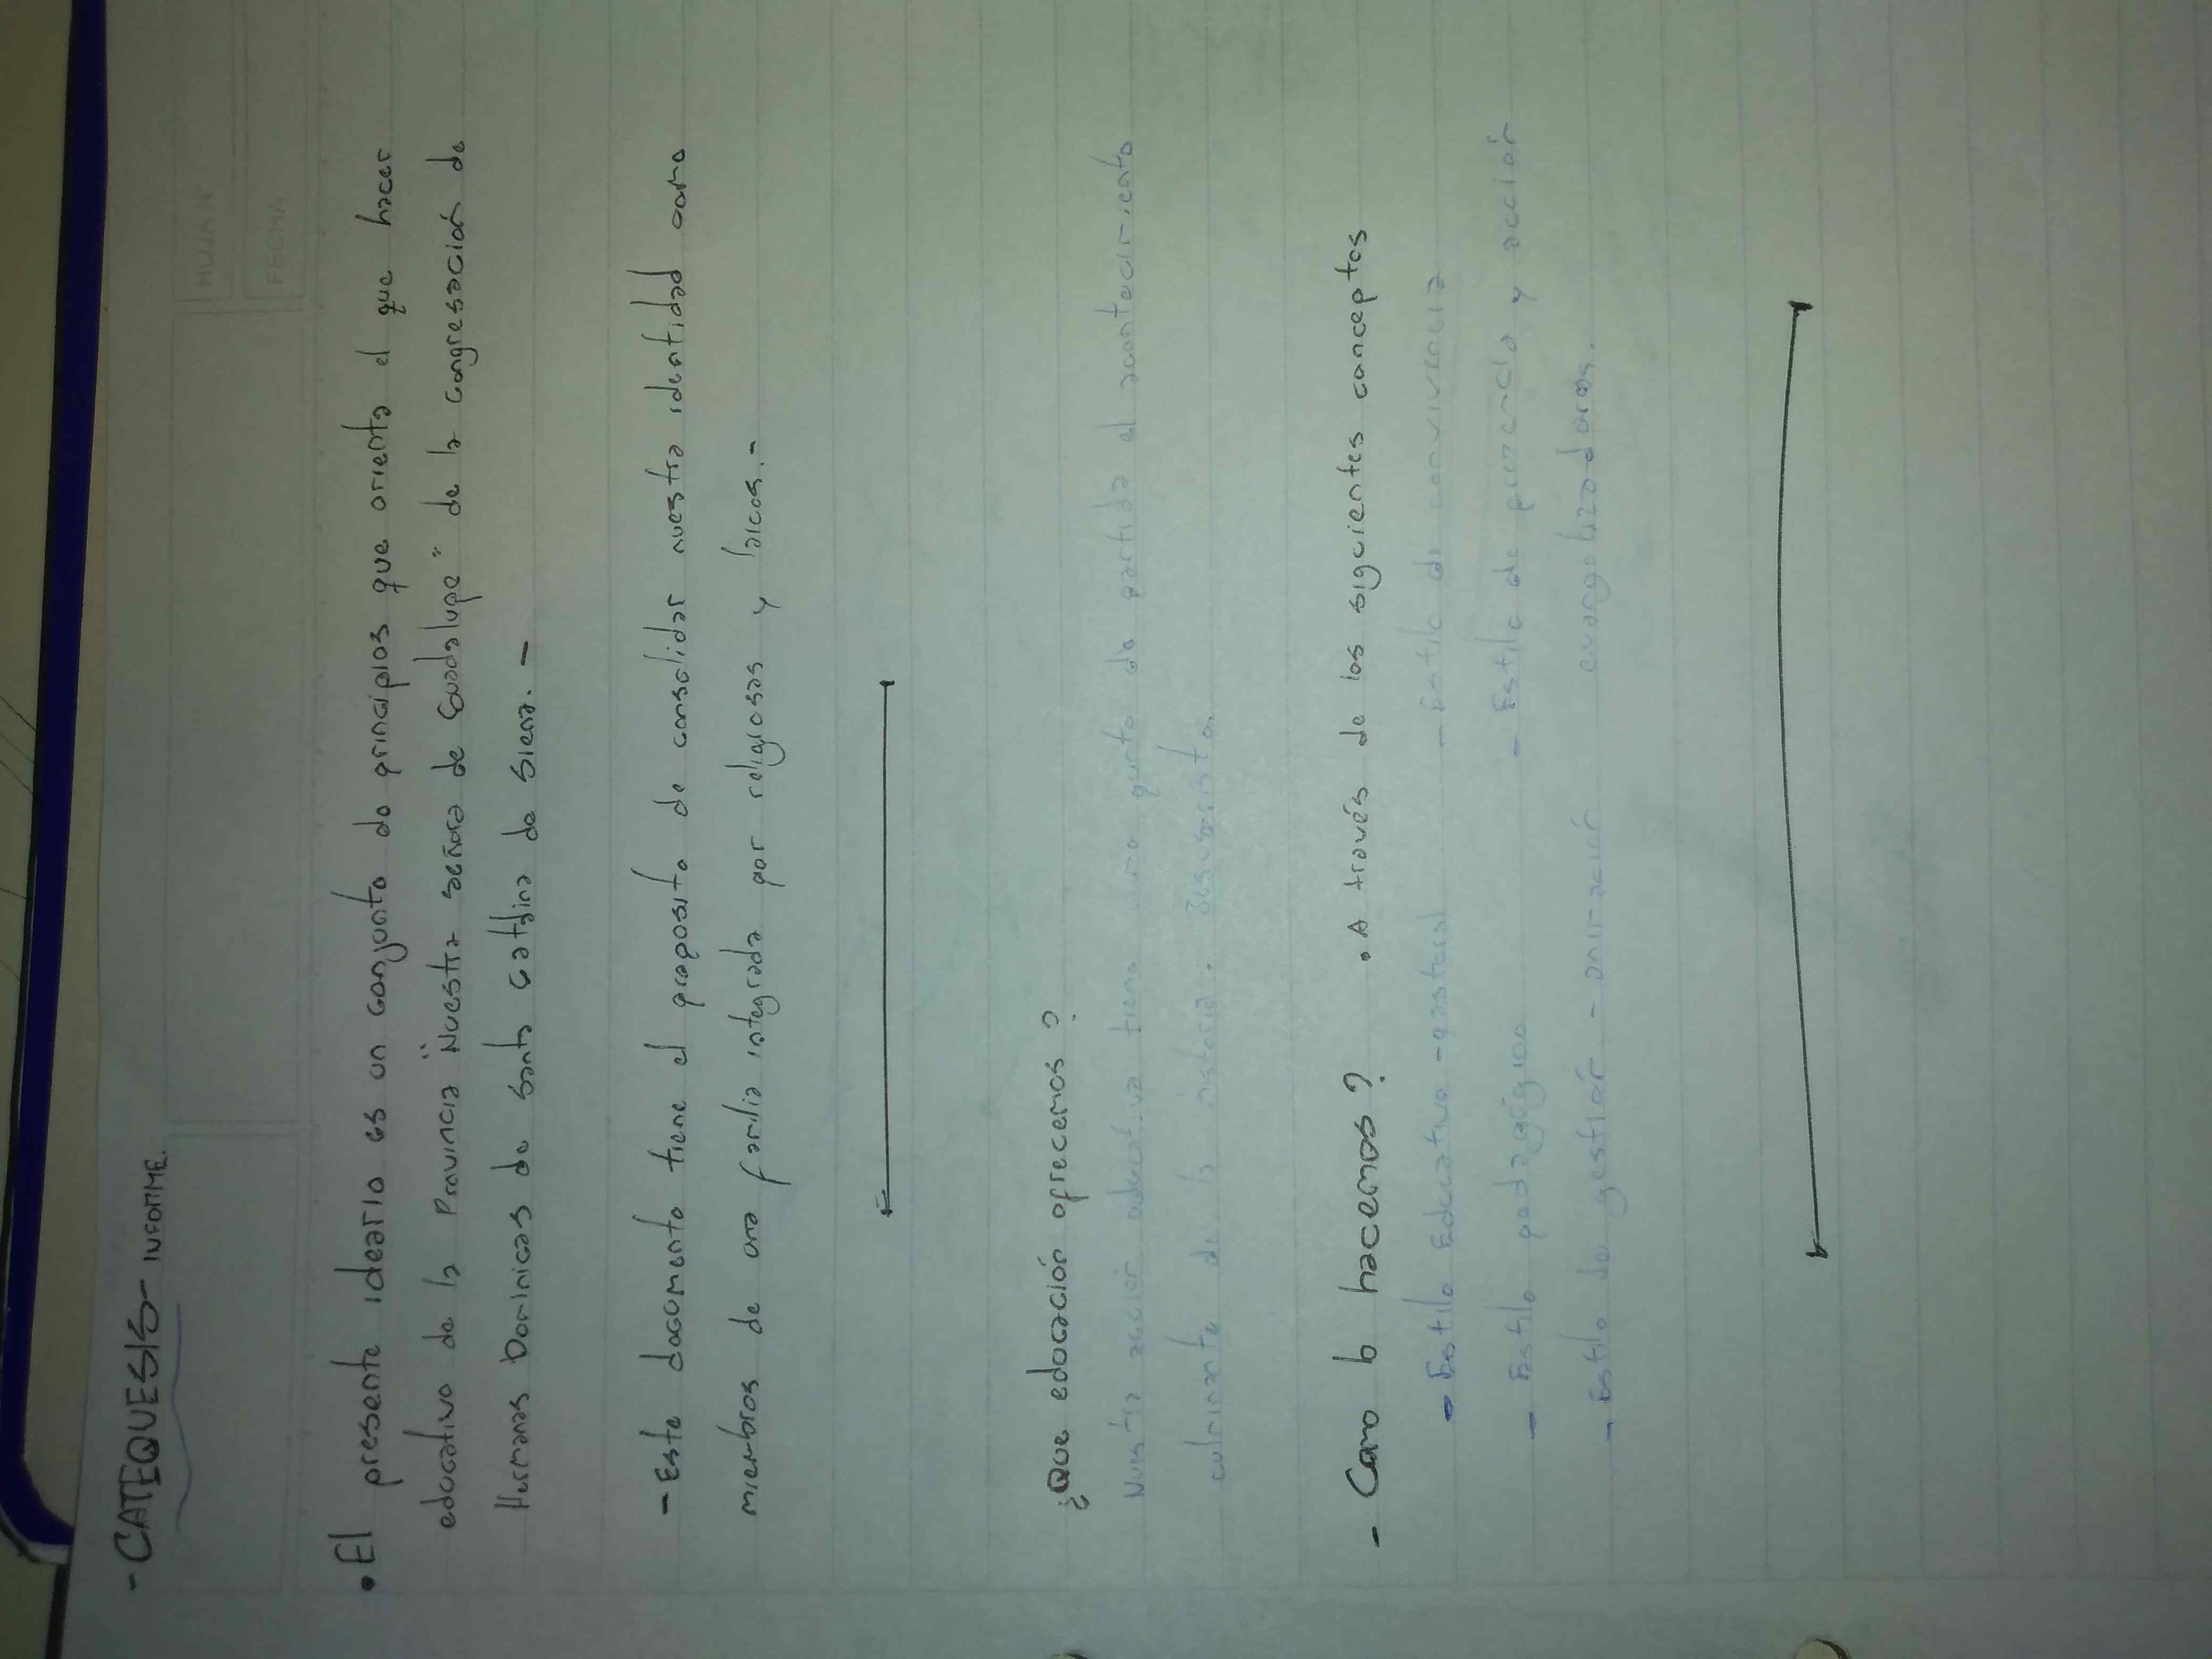 - CATEQUESIS - INFORME.
HOJA Nº
FECHA
• El presente ideario es un conjunto de principios que orienta el que hacer
educativo de la Provincia "Nuestra señora de Guadalupe" de la congregación de
Hermanas Dominicas de Santa Catalina de Siena. -
- Este documento tiene el proposito de consolidar nuestra identidad como
miembros de una familia integrada por religiosas y laicos. -
¿Que educación ofrecemos?
Nuestra acción educativa tiene como punto de partida el acontecimiento
culminante de la historia: Jesucristo.
- Como lo hacemos? • A través de los siguientes conceptos
- Estilo Educativo - pastoral - Estilo de convivencia
- Estilo pedagógico - Estilo de y acción
- Estilo de gestión - animación evangelizadoras.